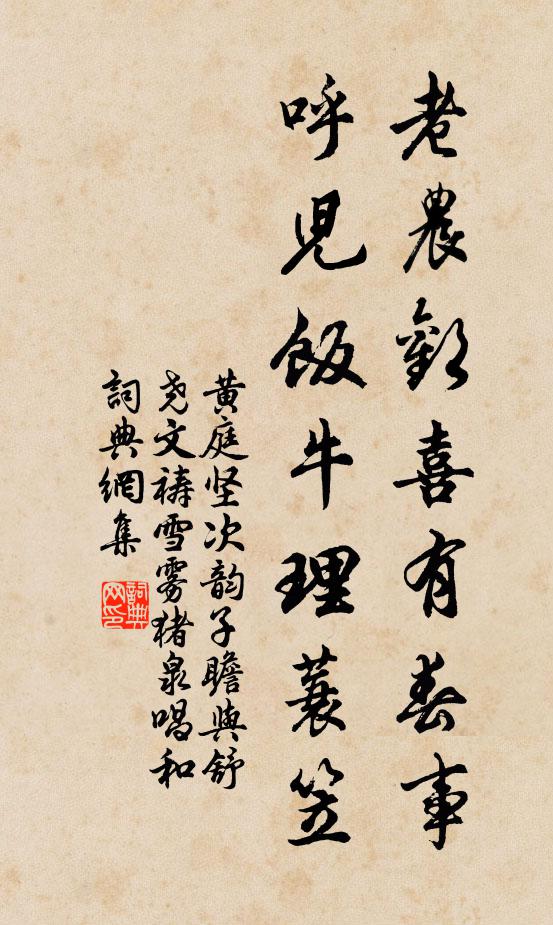 老農歡喜有春事
呼兒飯牛理蓑笠
黄庭坚次韵子瞻與舒
尧文祷雪雾猪泉唱和
詞典網集
詞典
网印